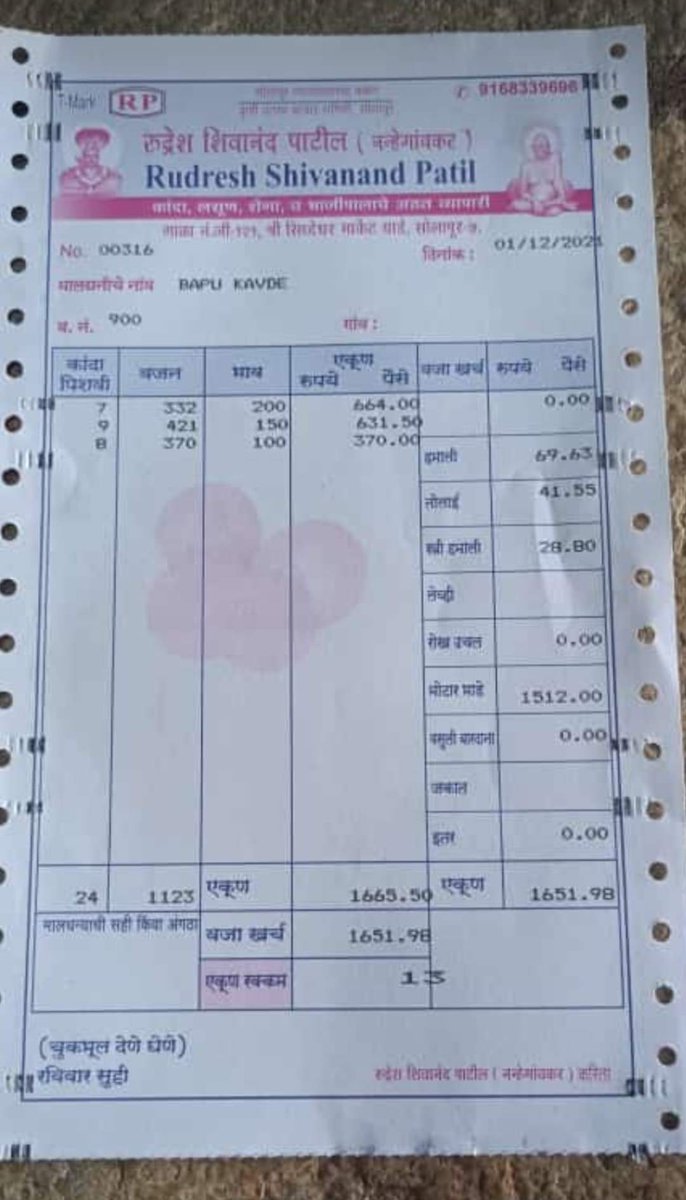 T-Mark RP
✆ 9168339696
रुद्रेश शिवानंद पाटील ( नन्हेगांवकर )
Rudresh Shivanand Patil
कांदा, लसूण, व भाजीपालाचे अडत व्यापारी
गाळा नं.जी-१२१, श्री सिध्देश्वर मार्केट यार्ड, सोलापूर-७.
No. 00316
दिनांक : 01/12/2021
मालधनीचे नांव BAPU KAVDE
ब. नं. 900 गांव :
कांदा पिशवी वजन भाव एकूण रुपये पैसे वजा खर्च रुपये पैसे
7 332 200 664.00 0.00
9 421 150 631.50
8 370 100 370.00
हमाली 69.63
तोलाई 41.55
स्त्री हमाली 28.80
लेव्ही
रोख उचल 0.00
मोटार भाडे 1512.00
वसुली बारदाना 0.00
जकात
इतर 0.00
24 1123 एकूण 1665.50 एकूण 1651.98
मालधन्याची सही किंवा अंगठा वजा खर्च 1651.98
एकूण रक्कम 13
(चुकभूल देणे घेणे)
रविवार सुट्टी
रुद्रेश शिवानंद पाटील ( नन्हेगांवकर ) करिता